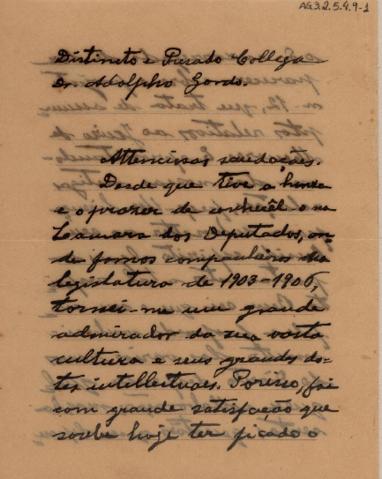 AG3.2.5.4.9-1
Distincto e Presado Collega
Dr. Adolpho Gordo.
Attenciosas saudações.
Desde que tive a honra
e o prazer de conhecêl-o na
Camara dos Deputados, on-
de fomos companheiros na
legislatura de 1903-1906,
tornei-me um grande
admirador da sua vasta
cultura e seus grandes do-
tes intellectuaes. Porisso, foi
com grande satisfacção que
soube hoje ter ficado o